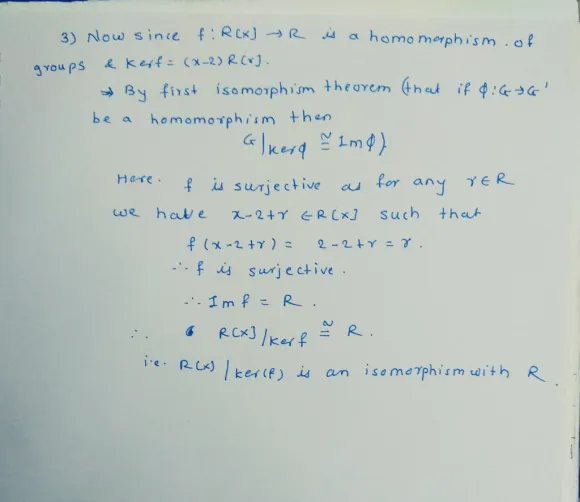 3) Now since f : R[x] → R is a homomorphism. of
groups & Kerf = (x-2) R[x].
⇒ By first isomorphism theorem (that if ϕ : G → G'
be a homomorphism then
G/kerϕ ≅ Imϕ)
Here. f is surjective as for any r ∈ R
we have x-2+r ∈ R[x] such that
f(x-2+r) = 2-2+r = r.
∴ f is surjective.
∴ Im f = R.
∴ R[x]/kerf ≅ R.
i.e. R[x]/ker(f) is an isomorphism with R.